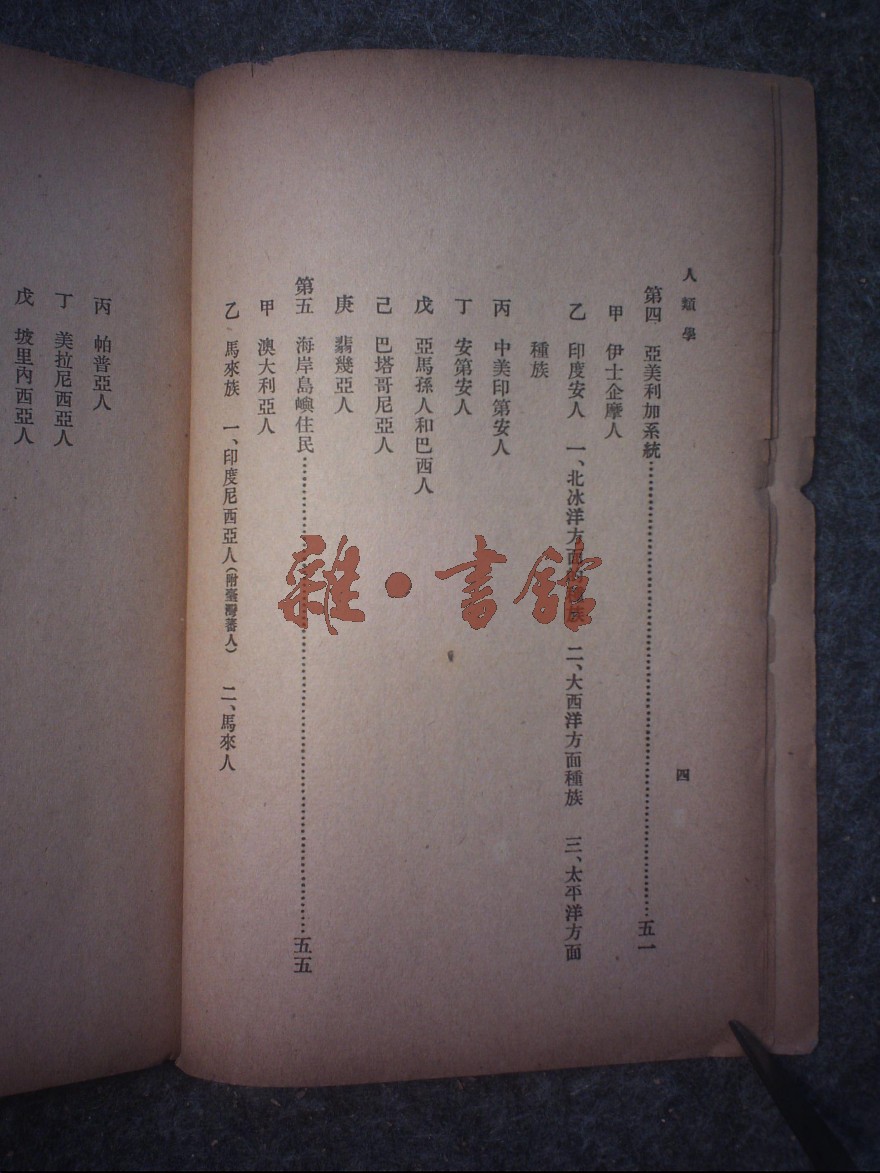 人類學
四
第四 亞美利加系統……五一
甲 伊士企摩人
乙 印度安人 一、北冰洋方面的種族 二、大西洋方面種族 三、太平洋方面
種族
丙 中美印第安人
丁 安第安人
戊 亞馬孫人和巴西人
己 巴塔哥尼亞人
庚 翡幾亞人
第五 海岸島嶼住民……五五
甲 澳大利亞人
乙 馬來族 一、印度尼西亞人(附臺灣蕃人) 二、馬來人
丙 帕普亞人
丁 美拉尼西亞人
戊 坡里內西亞人
雜·書館